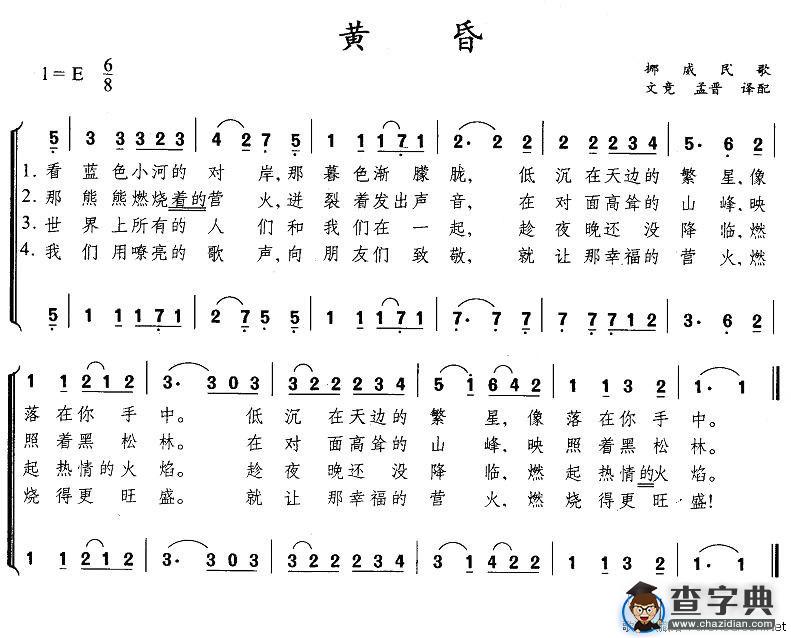 黄 昏
1=E 6/8
挪 威 民 歌
文竞 孟晋 译配
5 | 3 3 3 3 2 3 | 4 2 7 5 | 1 1 1 1 7 1 | 2· 2 2 | 2 2 2 2 3 4 | 5· 6 2 |
1. 看 蓝 色 小 河 的 对 岸,那 暮 色 渐 朦 胧, 低 沉 在 天 边 的 繁 星,像
2. 那 熊 熊 燃 烧 着 的 营 火,迸 裂 着 发 出 声 音, 在 对 面 高 耸 的 山 峰,映
3. 世 界 上 所 有 的 人 们 和 我 们 在 一 起, 趁 夜 晚 还 没 降 临,燃
4. 我 们 用 嘹 亮 的 歌 声,向 朋 友 们 致 敬, 就 让 那 幸 福 的 营 火,燃
5 | 1 1 1 1 7 1 | 2 7 5 5 | 1 1 1 1 7 1 | 7· 7 7 | 7 7 7 7 1 2 | 3· 6 2 |
1 1 2 1 2 | 3· 3 0 3 | 3 2 2 2 3 4 | 5 1 6 4 2 | 1 1 3 2 | 1· 1 ‖
落 在 你 手 中。 低 沉 在 天 边 的 繁 星,像 落 在 你 手 中。
照 着 黑 松 林。 在 对 面 高 耸 的 山 峰,映 照 着 黑 松 林。
起 热 情 的 火 焰。 趁 夜 晚 还 没 降 临,燃 起 热 情 的 火 焰。
烧 得 更 旺 盛。 就 让 那 幸 福 的 营 火,燃 烧 得 更 旺 盛!
1 1 2 1 2 | 3· 3 0 3 | 3 2 2 2 3 4 | 3 3 1 4 2 2 | 1 1 3 2 | 1· 1 ‖
查字典
www.chazidian.com